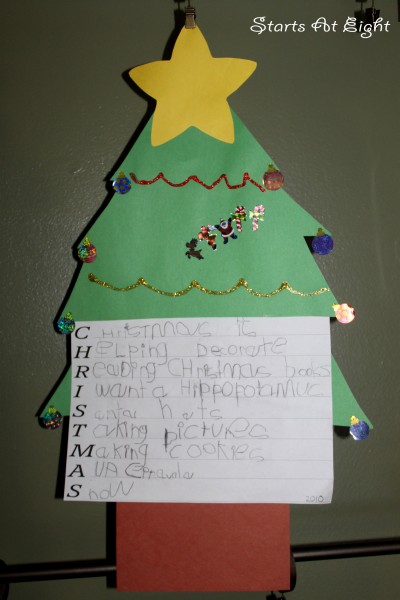 Starts At Eight
CHRISTMAS is
HELPing Decorate
Reading CHristmas books
I want a HiPPoPotamus
Santa hats
Taking pictures
Making cookies
A
Snow
2010